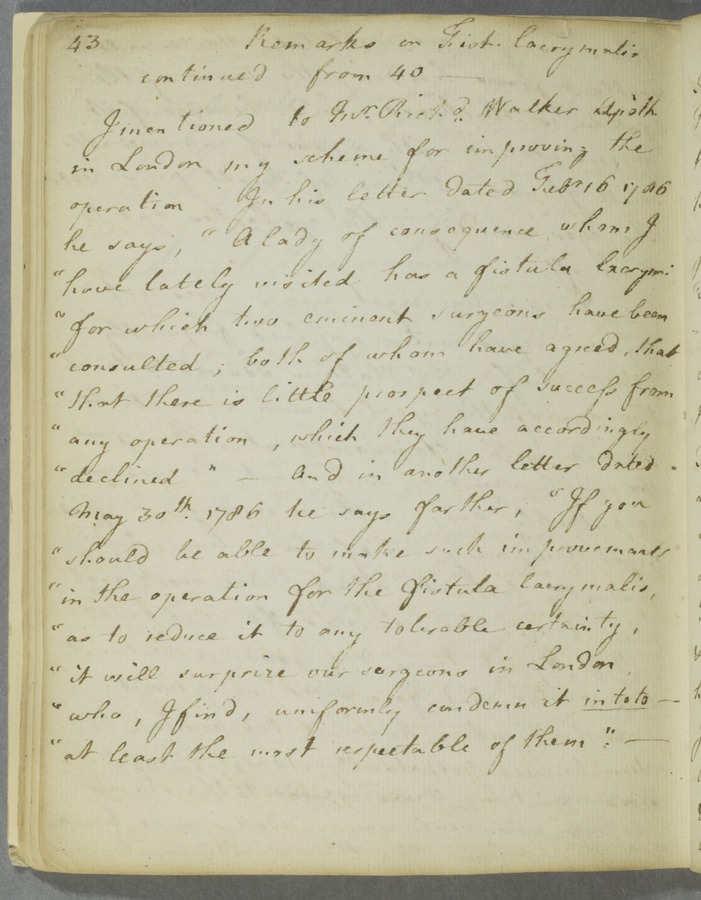 43 Remarks on Fist. lacrymalis
continued from 40 —
I mentioned to Mr. Richd. Walker Apoth.
in London my scheme for improving the
operation In his letter dated Febr 16 1786
he says, " A lady of consequence whom I
" have lately visited has a fistula lacrym:
" for which two eminent surgeons have been
" consulted ; both of whom have agreed, that
" that there is little prospect of success from
" any operation , which they have accordingly
" declined " — And in another letter dated
May 30th. 1786 he says farther, " If you
" should be able to make such improvements
" in the operation for the fistula lacrymalis,
" as to reduce it to any tolerable certainty,
" it will surprize our surgeons in London
" who, I find, uniformly condemn it in toto —
" at least the most respectable of them ". —